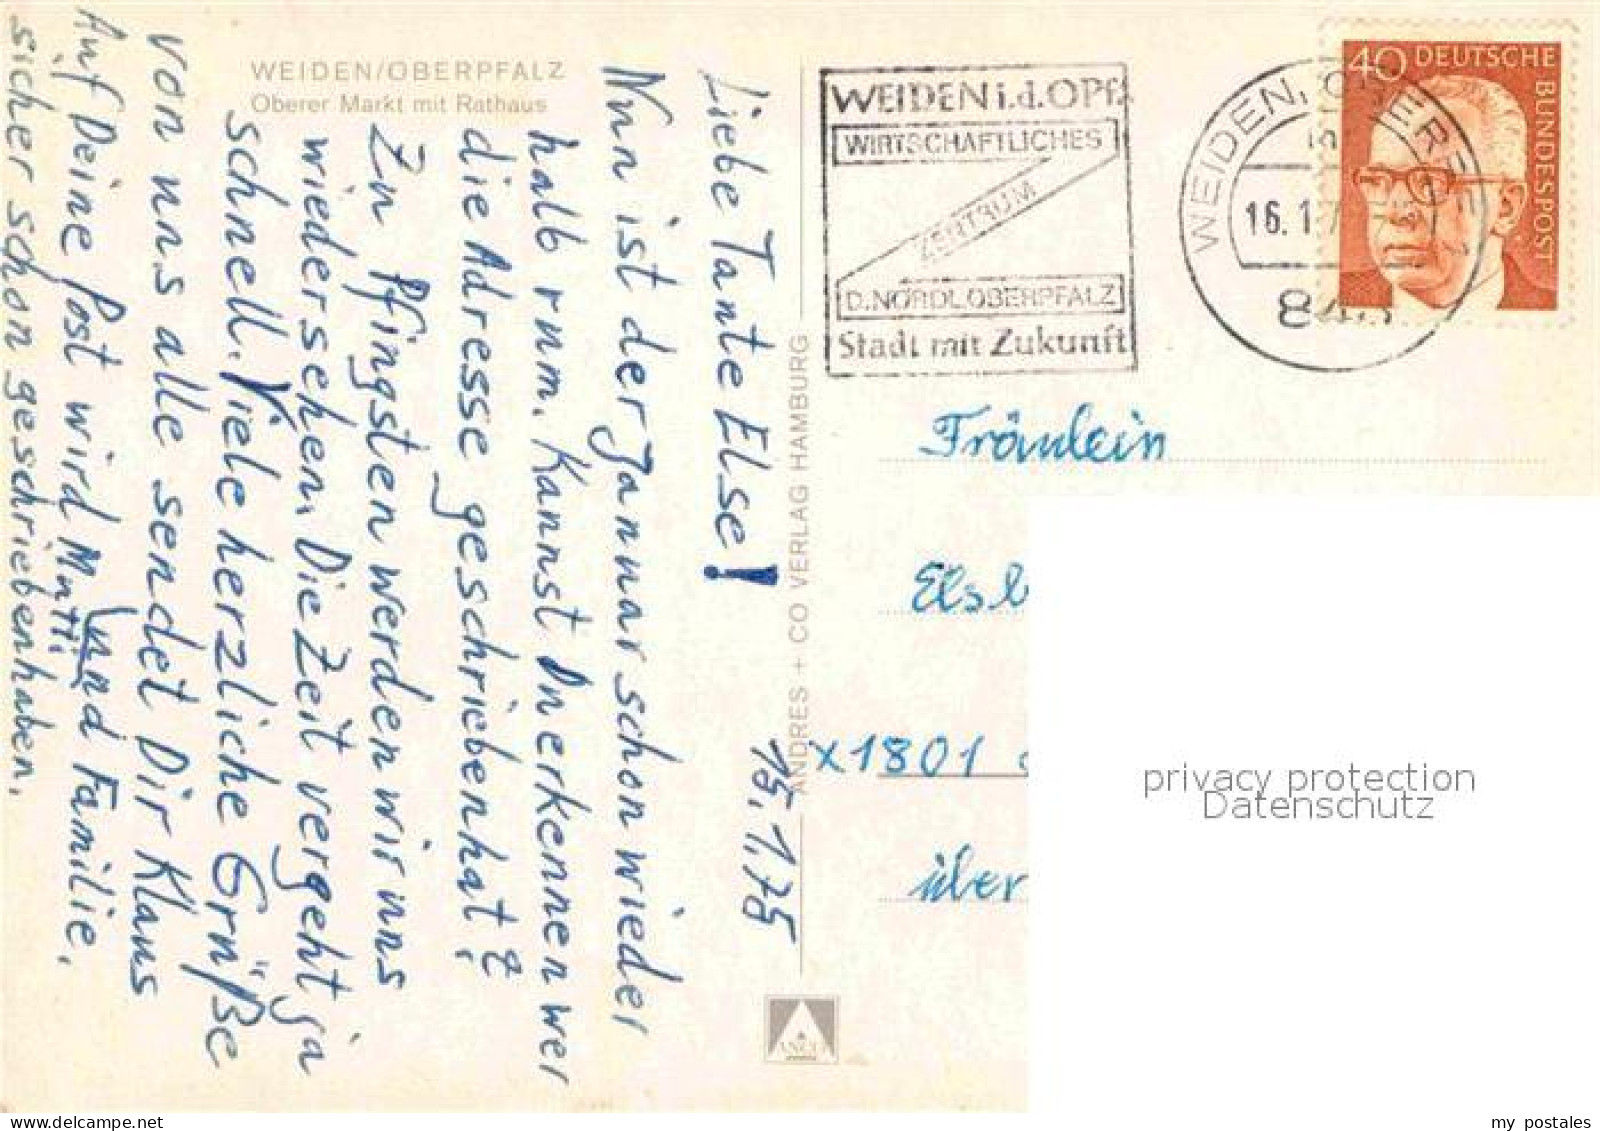 WEIDEN/OBERPFALZ
Oberer Markt mit Rathaus
Liebe Tante Else!
15.1.75
Nun ist der Januar schon wieder
halb rum. Kannst Du erkennen wer
die Adresse geschrieben hat?
Zu Pfingsten werden wir uns
wiedersehen. Die Zeit vergeht ja
schnell. Viele herzliche Grüße
von uns alle sendet Dir Klaus
und Familie.
Auf Deine Post wird Mutti
sicher schon geschrieben haben.
ANDRES + CO VERLAG HAMBURG
WEIDEN i.d.OPf.
WIRTSCHAFTLICHES
ZENTRUM
D.NÖRDL.OBERPFALZ
Stadt mit Zukunft
WEIDEN, OBERPF
16.1.7
40 DEUTSCHE
BUNDESPOST
Fräulein
Elsb
X1801
über
privacy protection
Datenschutz
my postales